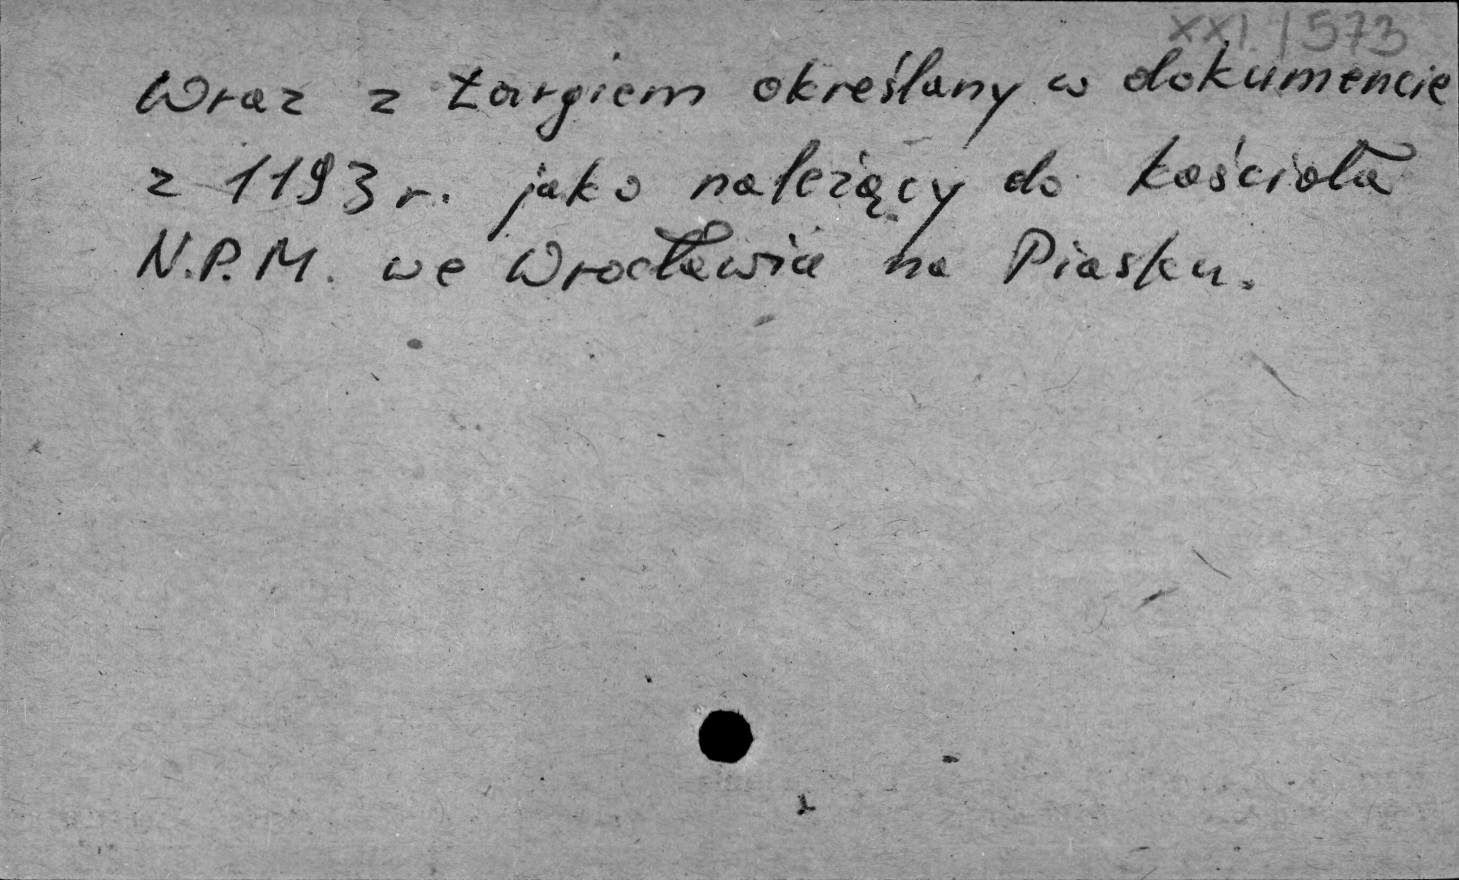 XXI./573
Wraz z targiem określany w dokumencie
z 1193 r. jako należący do kościoła
N.P.M. we Wrocławiu na Piasku.